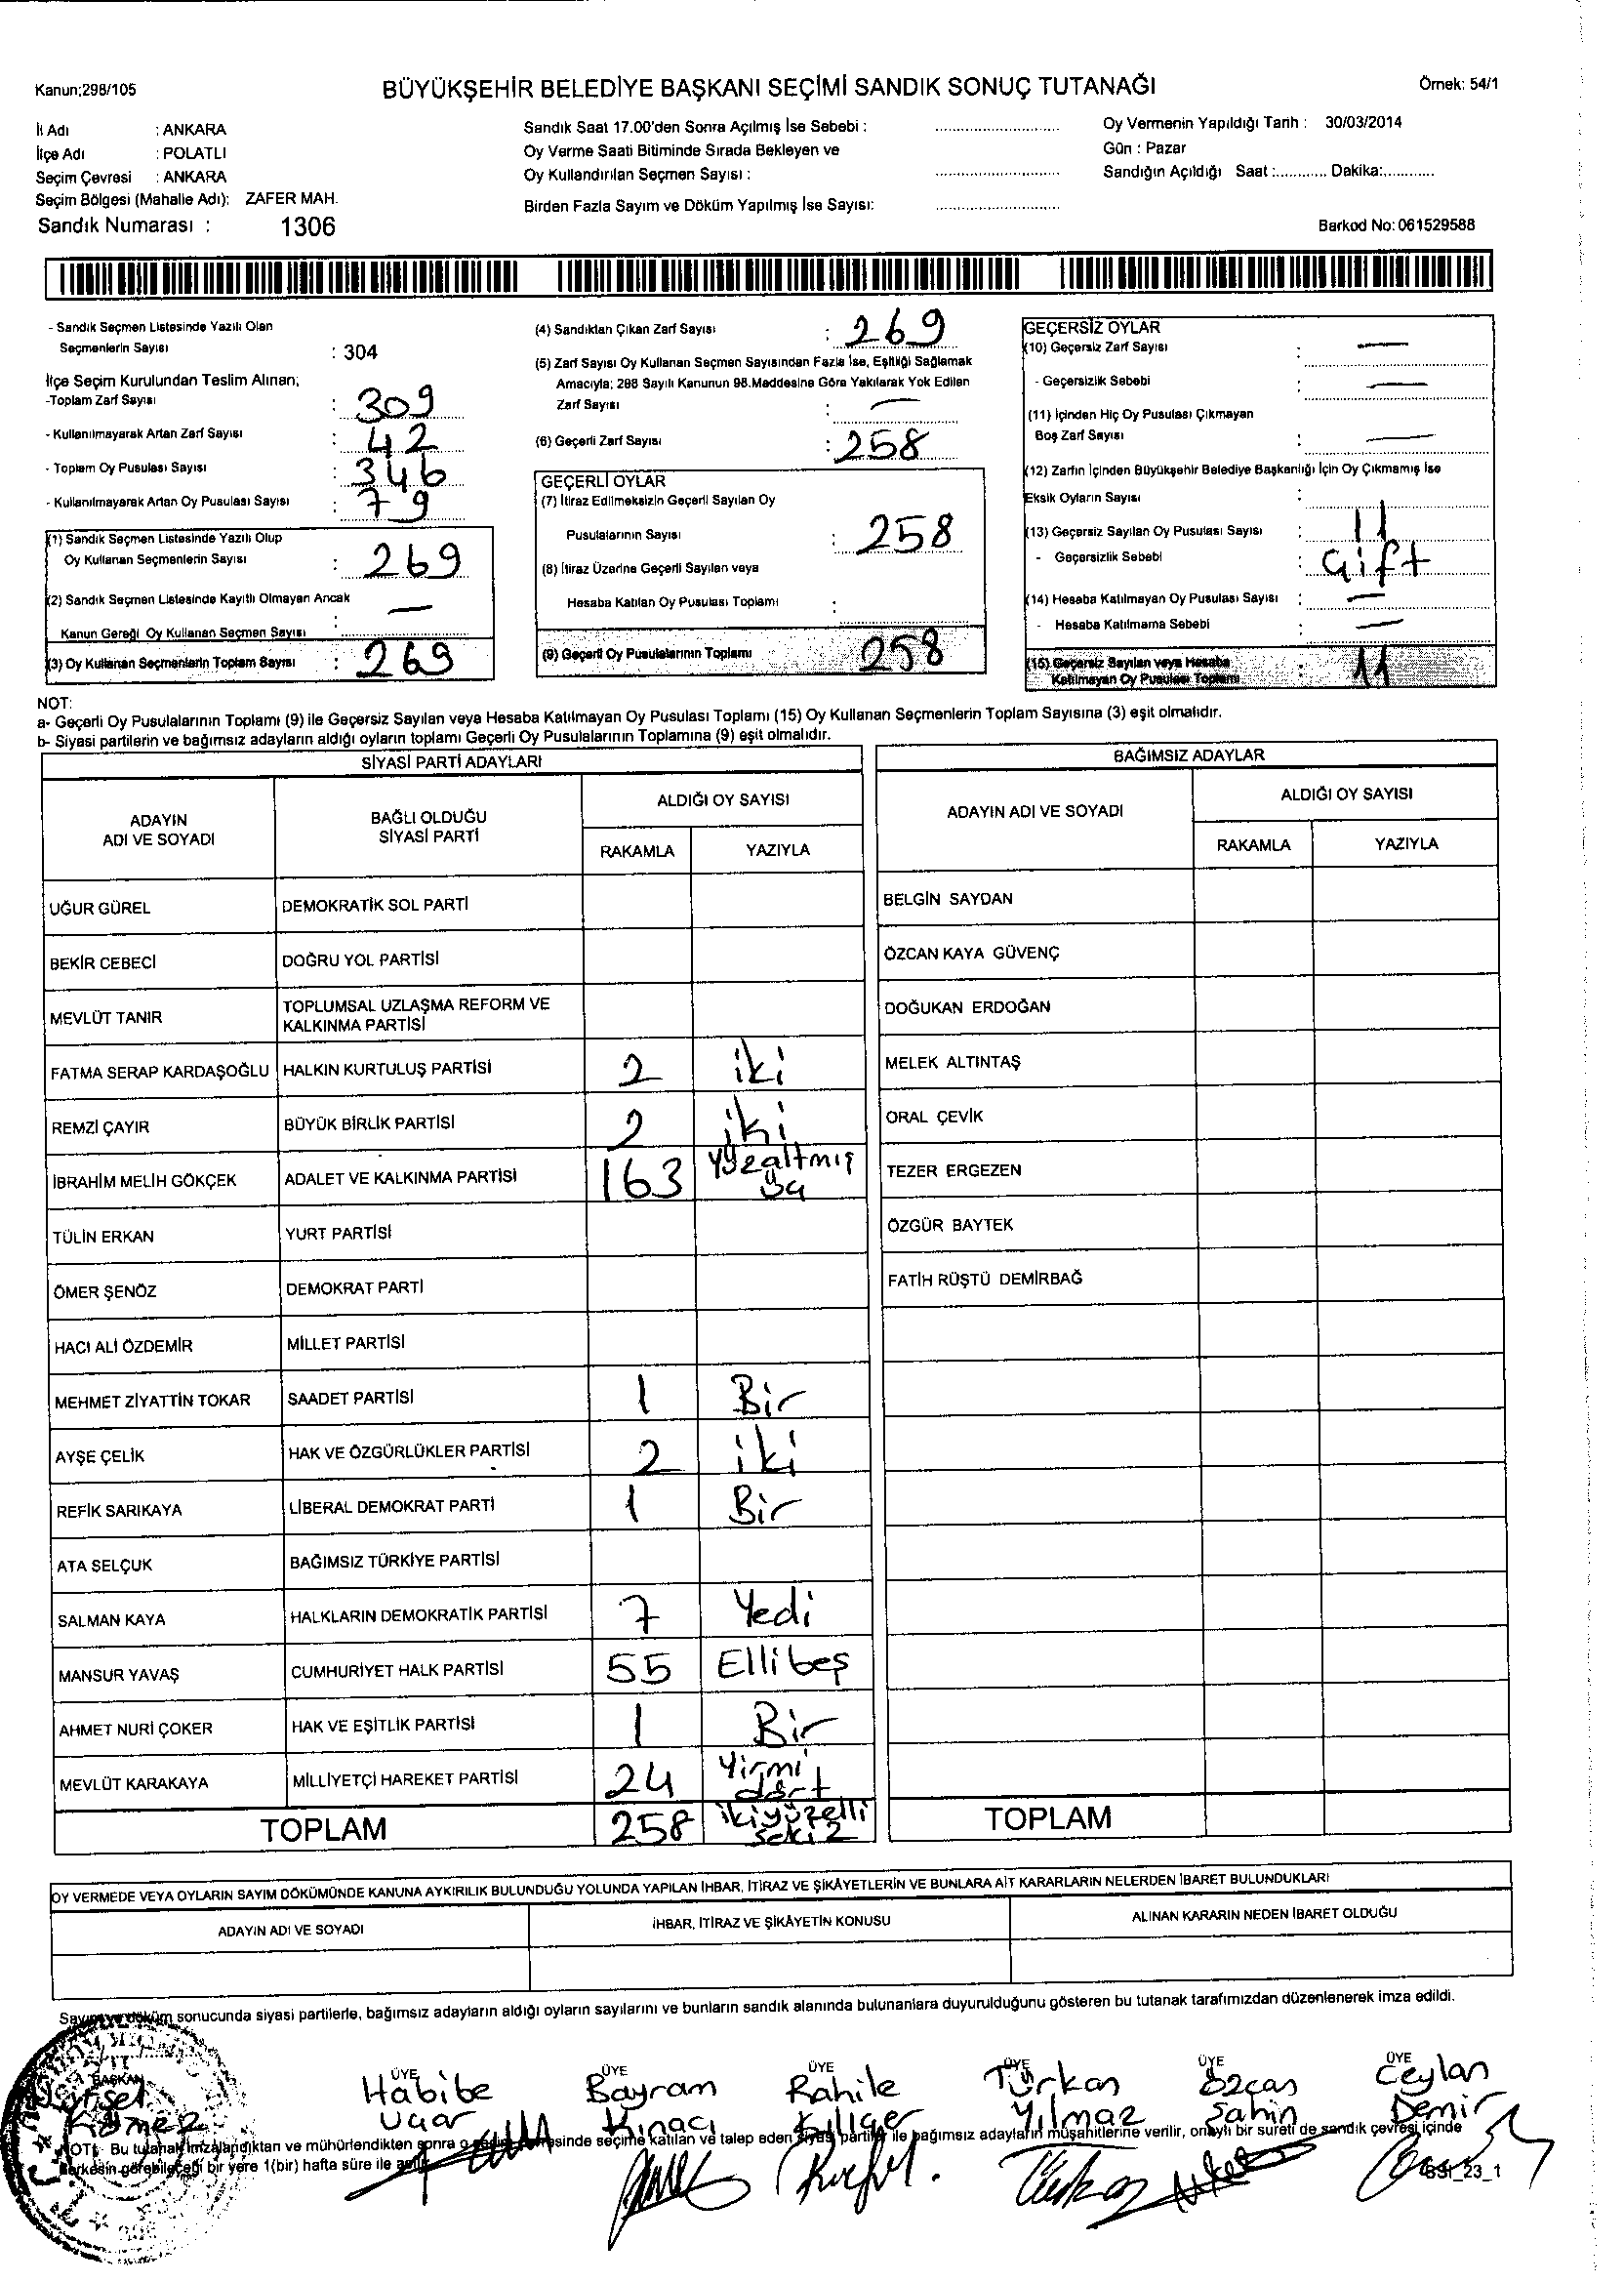 Kanun;298/105
BÜYÜKŞEHİR BELEDİYE BAŞKANI SEÇİMİ SANDIK SONUÇ TUTANAĞI
Örnek: 54/1
İl Adı : ANKARA
İlçe Adı : POLATLI
Seçim Çevresi : ANKARA
Seçim Bölgesi (Mahalle Adı): ZAFER MAH.
Sandık Numarası : 1306
Sandık Saat 17.00'den Sonra Açılmış İse Sebebi :
Oy Verme Saati Bitiminde Sırada Bekleyen ve
Oy Kullandırılan Seçmen Sayısı :
Birden Fazla Sayım ve Döküm Yapılmış İse Sayısı:
Oy Vermenin Yapıldığı Tarih : 30/03/2014
Gün : Pazar
Sandığın Açıldığı Saat :............ Dakika:............
Barkod No: 061529588
- Sandık Seçmen Listesinde Yazılı Olan
Seçmenlerin Sayısı : 304
İlçe Seçim Kurulundan Teslim Alınan;
-Toplam Zarf Sayısı : 309
- Kullanılmayarak Artan Zarf Sayısı : 42
- Toplam Oy Pusulası Sayısı : 346
- Kullanılmayarak Artan Oy Pusulası Sayısı : 79
(1) Sandık Seçmen Listesinde Yazılı Olup
Oy Kullanan Seçmenlerin Sayısı : 269
(2) Sandık Seçmen Listesinde Kayıtlı Olmayan Ancak
Kanun Gereği Oy Kullanan Seçmen Sayısı : —
(3) Oy Kullanan Seçmenlerin Toplam Sayısı : 269
(4) Sandıktan Çıkan Zarf Sayısı : 269
(5) Zarf Sayısı Oy Kullanan Seçmen Sayısından Fazla İse, Eşitliği Sağlamak
Amacıyla; 298 Sayılı Kanunun 98.Maddesine Göre Yakılarak Yok Edilen
Zarf Sayısı : —
(6) Geçerli Zarf Sayısı : 258
GEÇERLİ OYLAR
(7) İtiraz Edilmeksizin Geçerli Sayılan Oy
Pusulalarının Sayısı : 258
(8) İtiraz Üzerine Geçerli Sayılan veya
Hesaba Katılan Oy Pusulası Toplamı :
(9) Geçerli Oy Pusulalarının Toplamı 258
GEÇERSİZ OYLAR
(10) Geçersiz Zarf Sayısı : —
- Geçersizlik Sebebi : —
(11) İçinden Hiç Oy Pusulası Çıkmayan
Boş Zarf Sayısı : —
(12) Zarfın İçinden Büyükşehir Belediye Başkanlığı İçin Oy Çıkmamış İse
Eksik Oyların Sayısı :
(13) Geçersiz Sayılan Oy Pusulası Sayısı : 11
- Geçersizlik Sebebi : Çift
(14) Hesaba Katılmayan Oy Pusulası Sayısı : —
- Hesaba Katılmama Sebebi : —
(15) Geçersiz Sayılan veya Hesaba
Katılmayan Oy Pusulası Toplamı : 11
NOT:
a- Geçerli Oy Pusulalarının Toplamı (9) ile Geçersiz Sayılan veya Hesaba Katılmayan Oy Pusulası Toplamı (15) Oy Kullanan Seçmenlerin Toplam Sayısına (3) eşit olmalıdır.
b- Siyasi partilerin ve bağımsız adayların aldığı oyların toplamı Geçerli Oy Pusulalarının Toplamına (9) eşit olmalıdır.
SİYASİ PARTİ ADAYLARI
ADAYIN ADI VE SOYADI BAĞLI OLDUĞU SİYASİ PARTİ ALDIĞI OY SAYISI
RAKAMLA YAZIYLA
UĞUR GÜREL DEMOKRATİK SOL PARTİ
BEKİR CEBECİ DOĞRU YOL PARTİSİ
MEVLÜT TANIR TOPLUMSAL UZLAŞMA REFORM VE KALKINMA PARTİSİ
FATMA SERAP KARDAŞOĞLU HALKIN KURTULUŞ PARTİSİ 2 iki
REMZİ ÇAYIR BÜYÜK BİRLİK PARTİSİ 2 iki
İBRAHİM MELİH GÖKÇEK ADALET VE KALKINMA PARTİSİ 163 Yüzaltmış
TÜLİN ERKAN YURT PARTİSİ
ÖMER ŞENÖZ DEMOKRAT PARTİ
HACI ALİ ÖZDEMİR MİLLET PARTİSİ
MEHMET ZİYATTİN TOKAR SAADET PARTİSİ 1 Bir
AYŞE ÇELİK HAK VE ÖZGÜRLÜKLER PARTİSİ 2 iki
REFİK SARIKAYA LİBERAL DEMOKRAT PARTİ 1 Bir
ATA SELÇUK BAĞIMSIZ TÜRKİYE PARTİSİ
SALMAN KAYA HALKLARIN DEMOKRATİK PARTİSİ 7 Yedi
MANSUR YAVAŞ CUMHURİYET HALK PARTİSİ 55 Ellibeş
AHMET NURİ ÇOKER HAK VE EŞİTLİK PARTİSİ 1 Bir
MEVLÜT KARAKAYA MİLLİYETÇİ HAREKET PARTİSİ 24 Yirmi dört
TOPLAM 258 ikiyüzelli sekiz
BAĞIMSIZ ADAYLAR
ADAYIN ADI VE SOYADI ALDIĞI OY SAYISI
RAKAMLA YAZIYLA
BELGİN SAYDAN
ÖZCAN KAYA GÜVENÇ
DOĞUKAN ERDOĞAN
MELEK ALTINTAŞ
ORAL ÇEVİK
TEZER ERGEZEN
ÖZGÜR BAYTEK
FATİH RÜŞTÜ DEMİRBAĞ
TOPLAM
OY VERMEDE VEYA OYLARIN SAYIM DÖKÜMÜNDE KANUNA AYKIRILIK BULUNDUĞU YOLUNDA YAPILAN İHBAR, İTİRAZ VE ŞİKÂYETLERİN VE BUNLARA AİT KARARLARIN NELERDEN İBARET BULUNDUKLARI
ADAYIN ADI VE SOYADI İHBAR, İTİRAZ VE ŞİKÂYETİN KONUSU ALINAN KARARIN NEDEN İBARET OLDUĞU
Sayım ve döküm sonucunda siyasi partilerle, bağımsız adayların aldığı oyların sayılarını ve bunların sandık alanında bulunanlara duyurulduğunu gösteren bu tutanak tarafımızdan düzenlenerek imza edildi.
BAŞKAN ÜYE ÜYE ÜYE ÜYE ÜYE ÜYE
Habibe Bayram Rahile Türkan Özcan Ceylan
Uçar Kınacı Kılıçer Yılmaz Şahin Demir
NOT: Bu tutanak imzalandıktan ve mühürlendikten sonra seçime katılan ve talep eden siyasi partiler ile bağımsız adayların müşahitlerine verilir, onaylı bir sureti de sandık çevresi içinde
herkesin görebileceği bir yere 1(bir) hafta süre ile asılır.